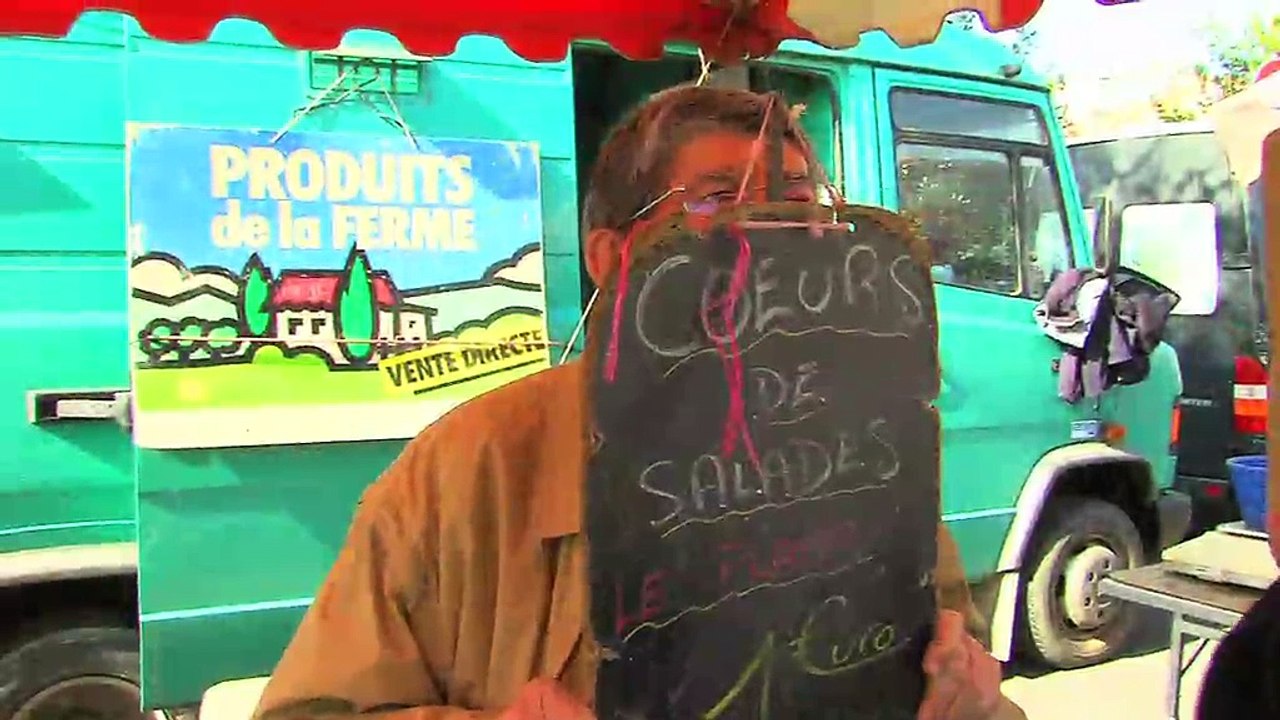 PRODUITS
de la FERME
VENTE DIRECTE
COEURS
DE
SALADES
LE
1 €uro